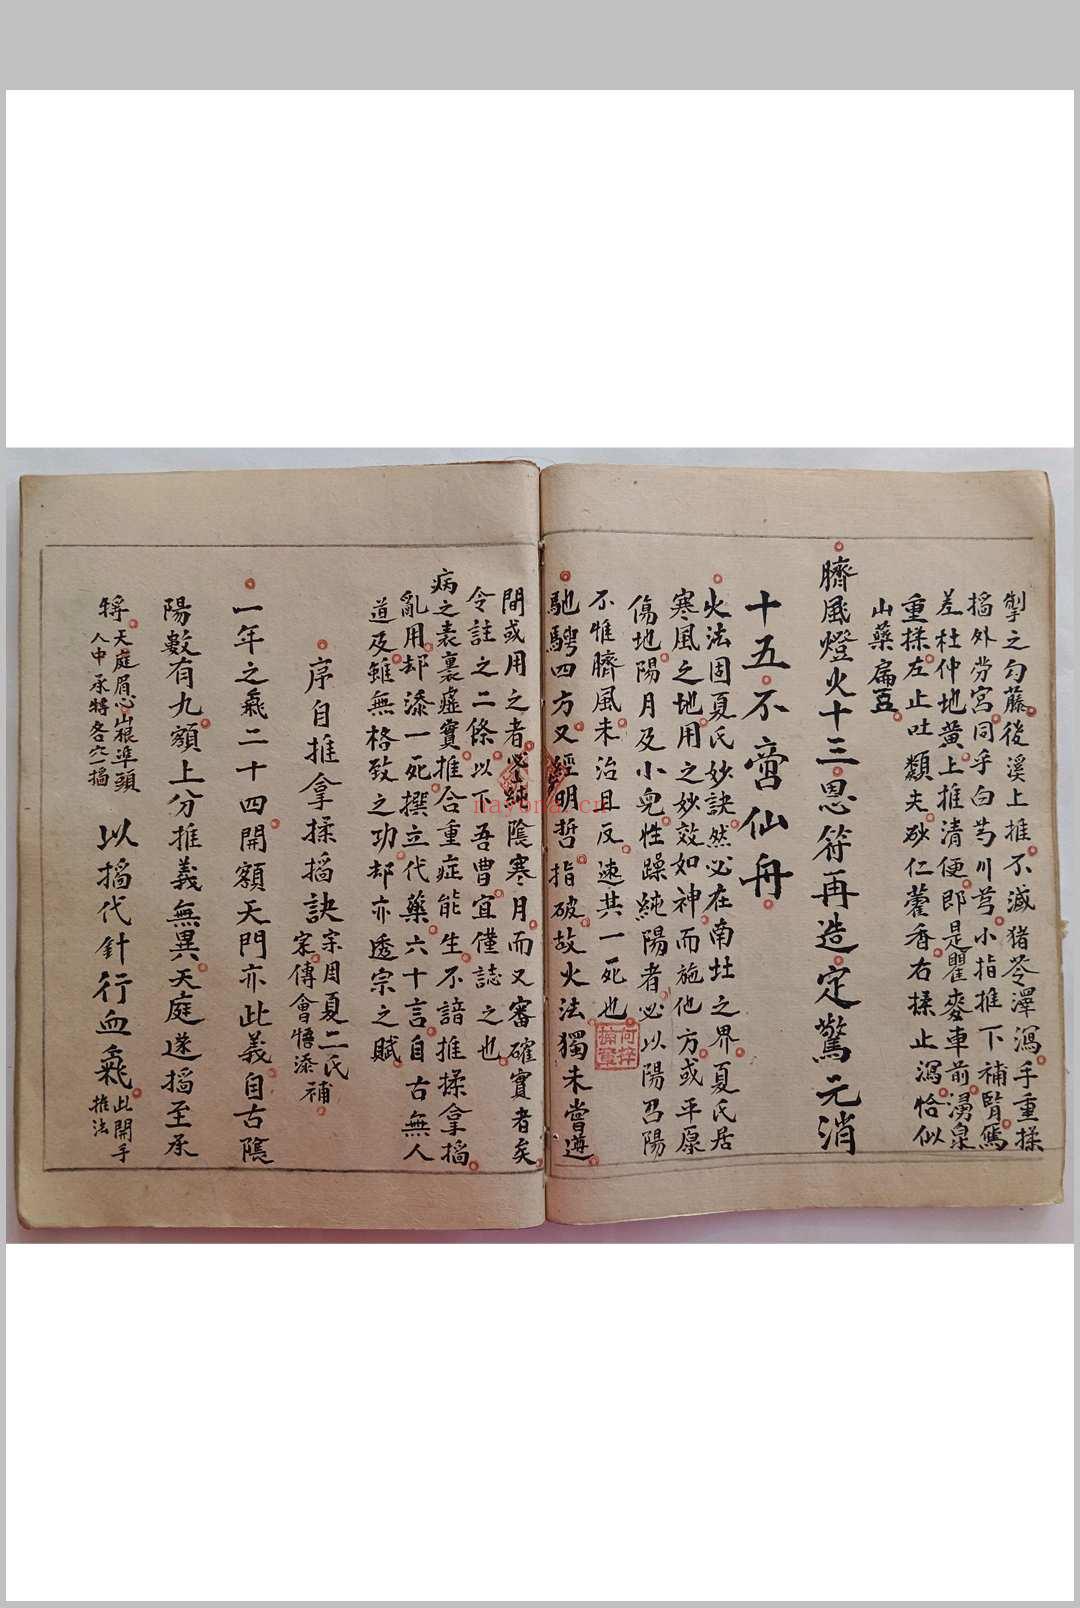 掣之勾藤後溪上推不減猪苓澤瀉手重揉
搯外劳宮同乎白芍川芎小指推下補腎焉
差杜仲地黄上推清便即是瞿麥車前湧泉
重揉左止吐類夫砂仁藿香右揉止瀉恰似
山藥扁荳
臍風燈火十三恩符再造定驚元消
十五不啻仙舟
火法固夏氏妙訣然必在南北之界夏氏居
寒風之地用之妙效如神而施他方或平原
傷地陽月及小兒性躁純陽者必以陽召陽
不惟臍風未治且反速其一死也
馳騁四方又經明哲指破故火法獨未嘗遵
間或用之者必純陰寒月而又審確實者矣
令註之二條以下吾曹宜僅誌之也
病之表裏虛實推合重症能生不諳推揉拿搯
亂用却添一死撰立代藥六十言自古無人
道及雖無格致之功却亦透宗之賦
序自推拿揉搯訣宗用夏二氏
家傳會悟添補
一年之氣二十四開額天門亦此義自古陰
陽數有九額上分推義無異天庭遂搯至承
將天庭眉心山根準頭
人中承將各穴一搯
以搯代針行血氣此開手
推法
nayona.cn